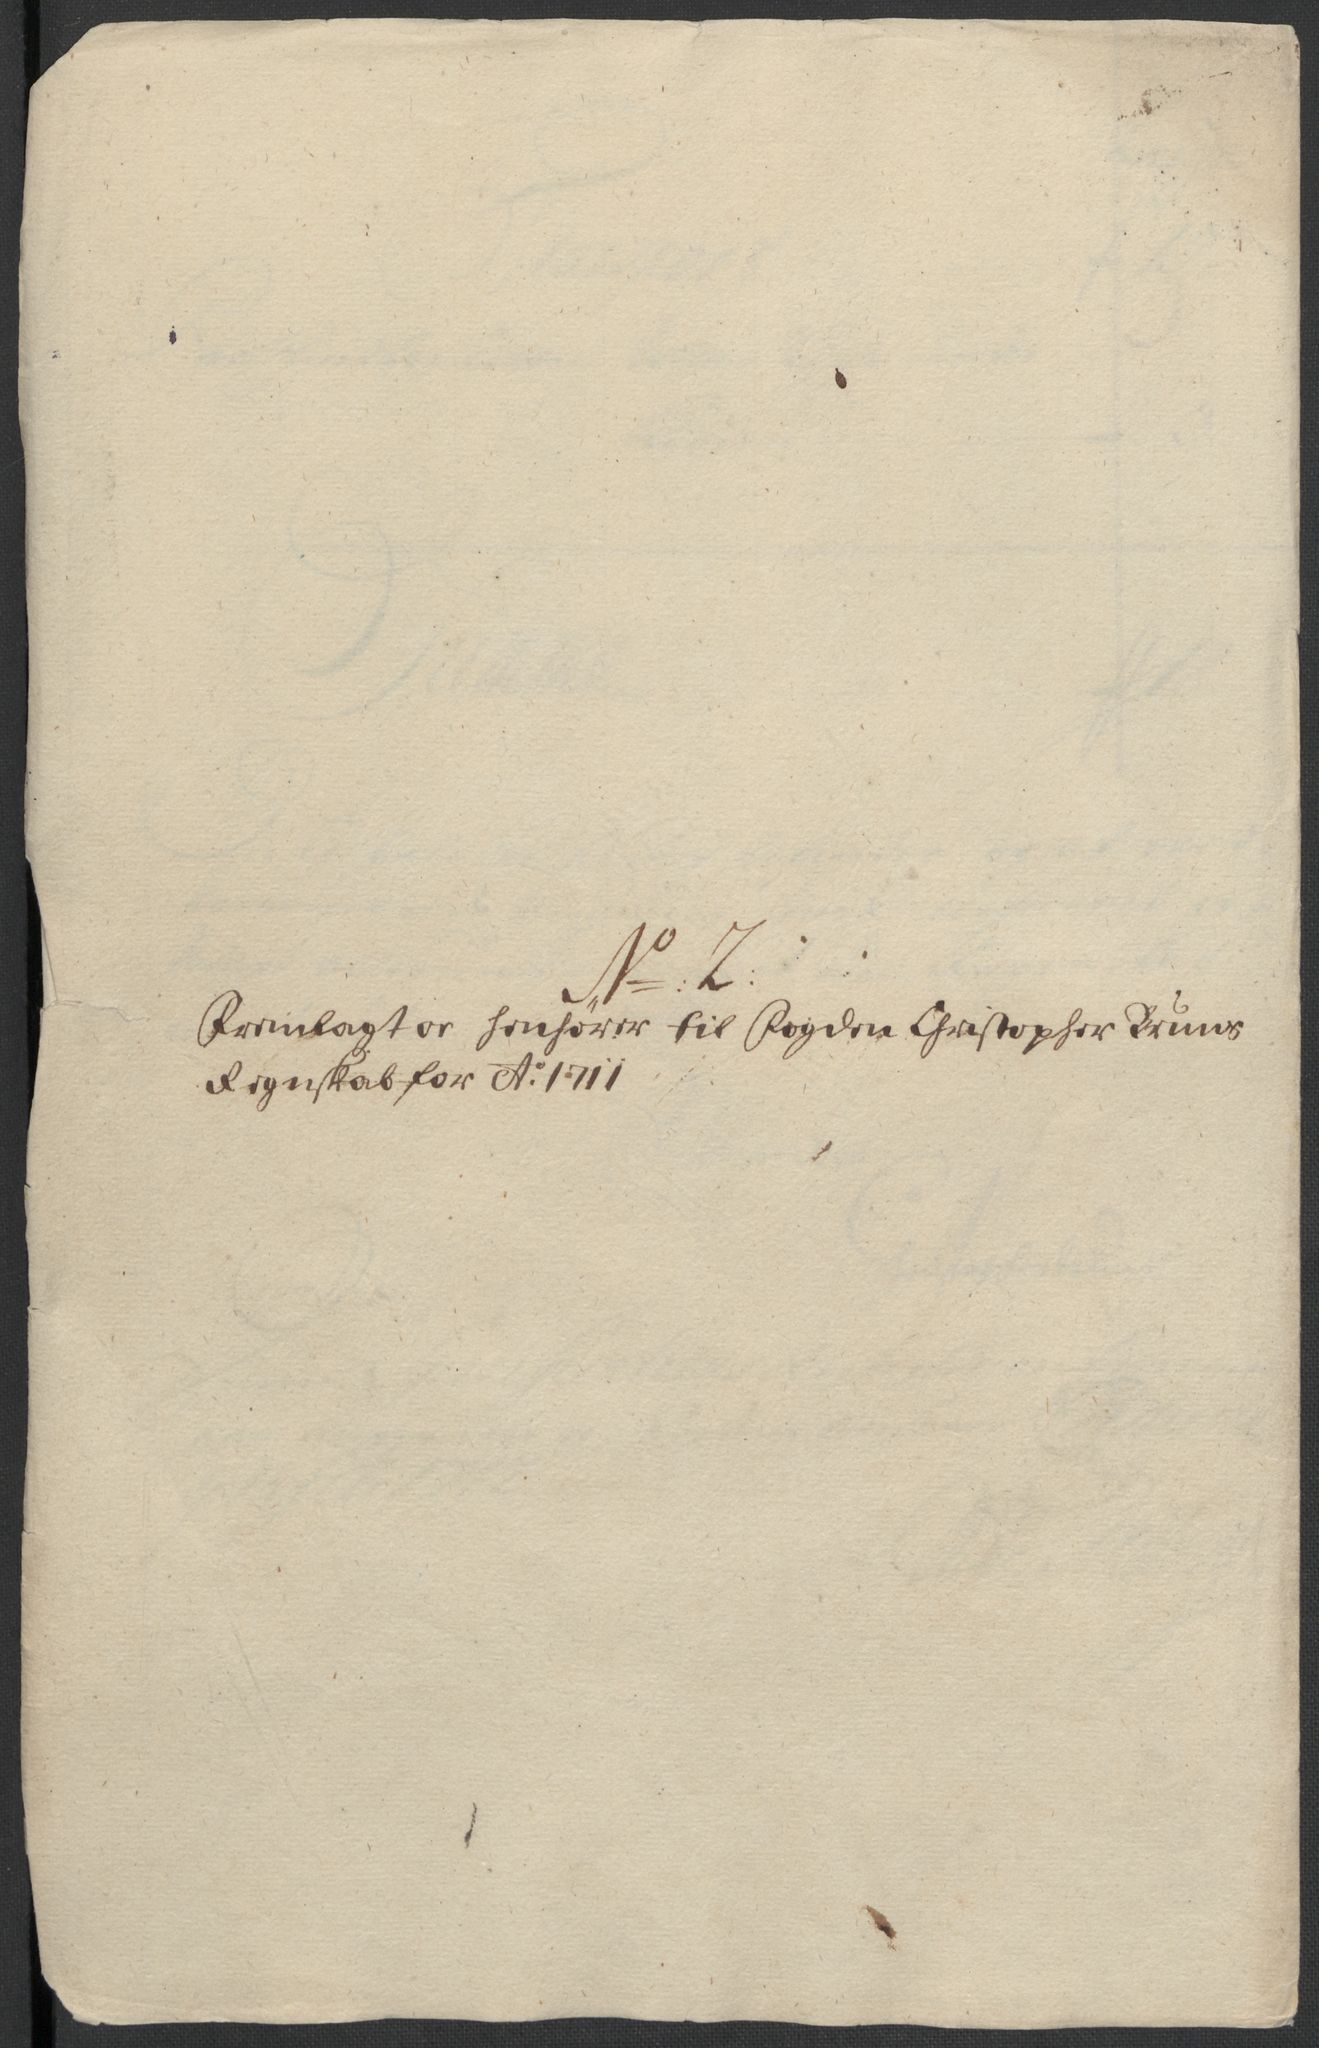 No: 2:
Fremlagt oc henhörer til Fogden Christopher Bruns
Regnskab for Ao: 1711